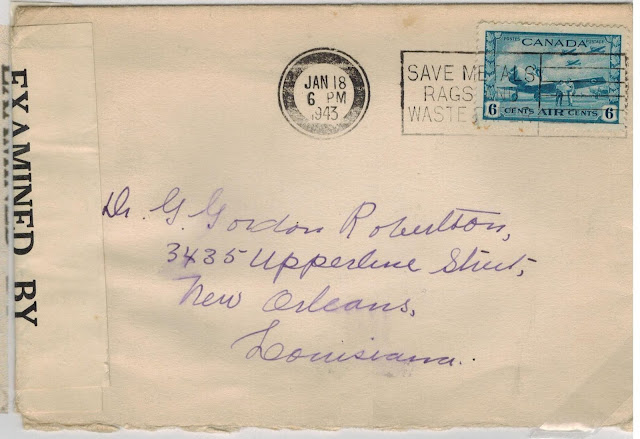 EXAMINED BY
JAN 18
6 PM
1943
SAVE METALS
RAGS
WASTE
POSTES POSTAGE
CANADA
6 CENTS AIR CENTS 6
Dr. G. Gordon Robertson,
3435 Upperline Street,
New Orleans,
Louisiana.